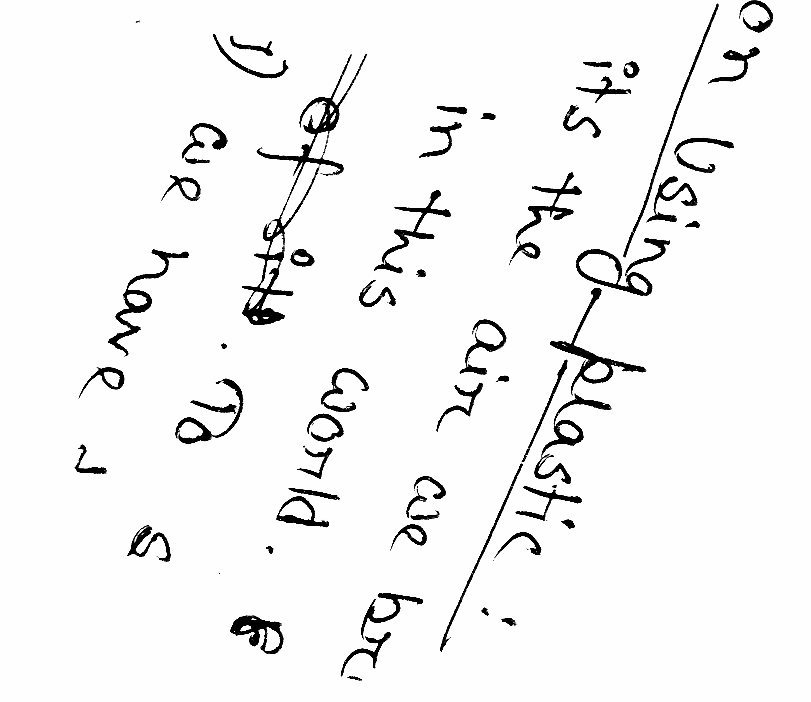 on Using plastic :
its the air we br
in this world.
. To
1) we have